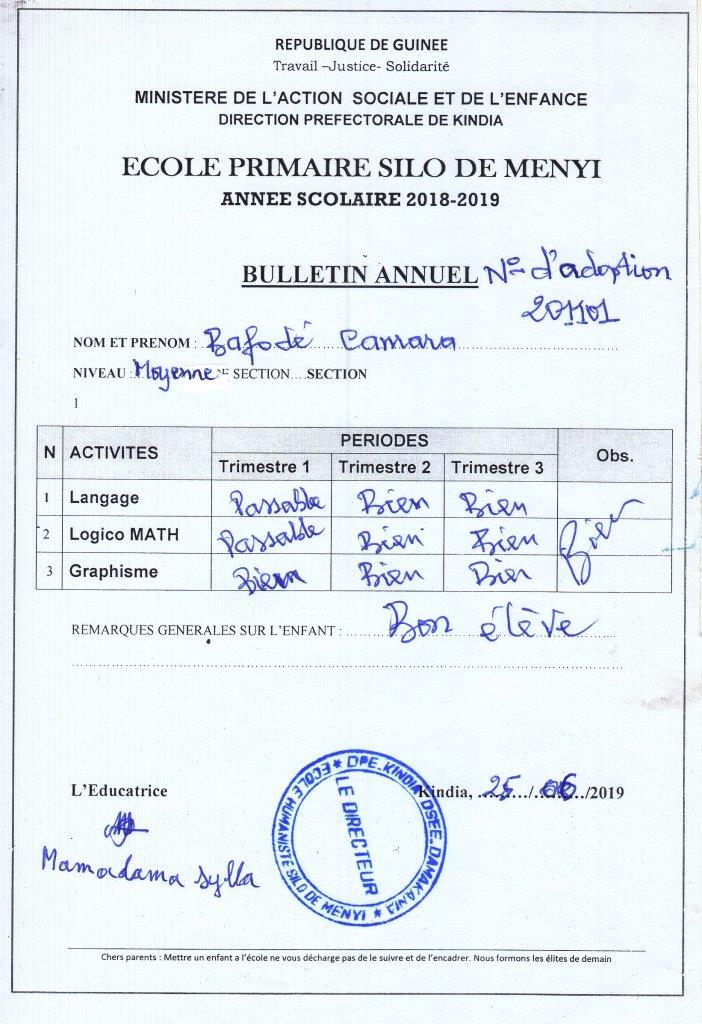 REPUBLIQUE DE GUINEE
Travail –Justice- Solidarité
MINISTERE DE L'ACTION SOCIALE ET DE L'ENFANCE
DIRECTION PREFECTORALE DE KINDIA
ECOLE PRIMAIRE SILO DE MENYI
ANNEE SCOLAIRE 2018-2019
BULLETIN ANNUEL N° d'adoption
201101
NOM ET PRENOM : Bafodé Camara
NIVEAU : Moyenne DE SECTION....SECTION
1
N ACTIVITES PERIODES Obs.
Trimestre 1 Trimestre 2 Trimestre 3
1 Langage Passable Bien Bien
2 Logico MATH Passable Bien Bien Bien
3 Graphisme Bien Bien Bien
REMARQUES GENERALES SUR L'ENFANT : Bon élève
L'Educatrice Kindia, 25/06/2019
Mamadama Sylla
DPE.KINDIA DSEE.DAMAKANIA * ECOLE HUMANISTE SILO DE MENYI *
LE DIRECTEUR
Chers parents : Mettre un enfant a l'école ne vous décharge pas de le suivre et de l'encadrer. Nous formons les élites de demain